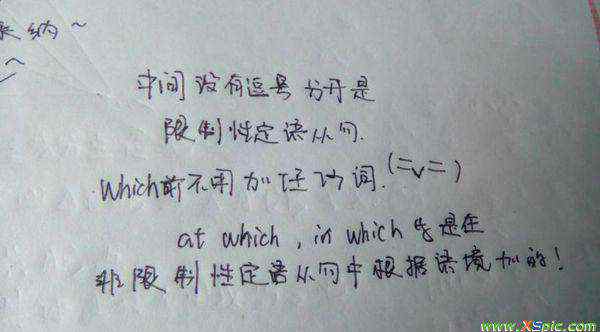 采纳~
~
中间没有逗号分开是
限制性定语从句.
which前不用加任何词.(=v=)
at which, in which 都是在
非限制性定语从句中根据语境加的!
www.XSpic.com